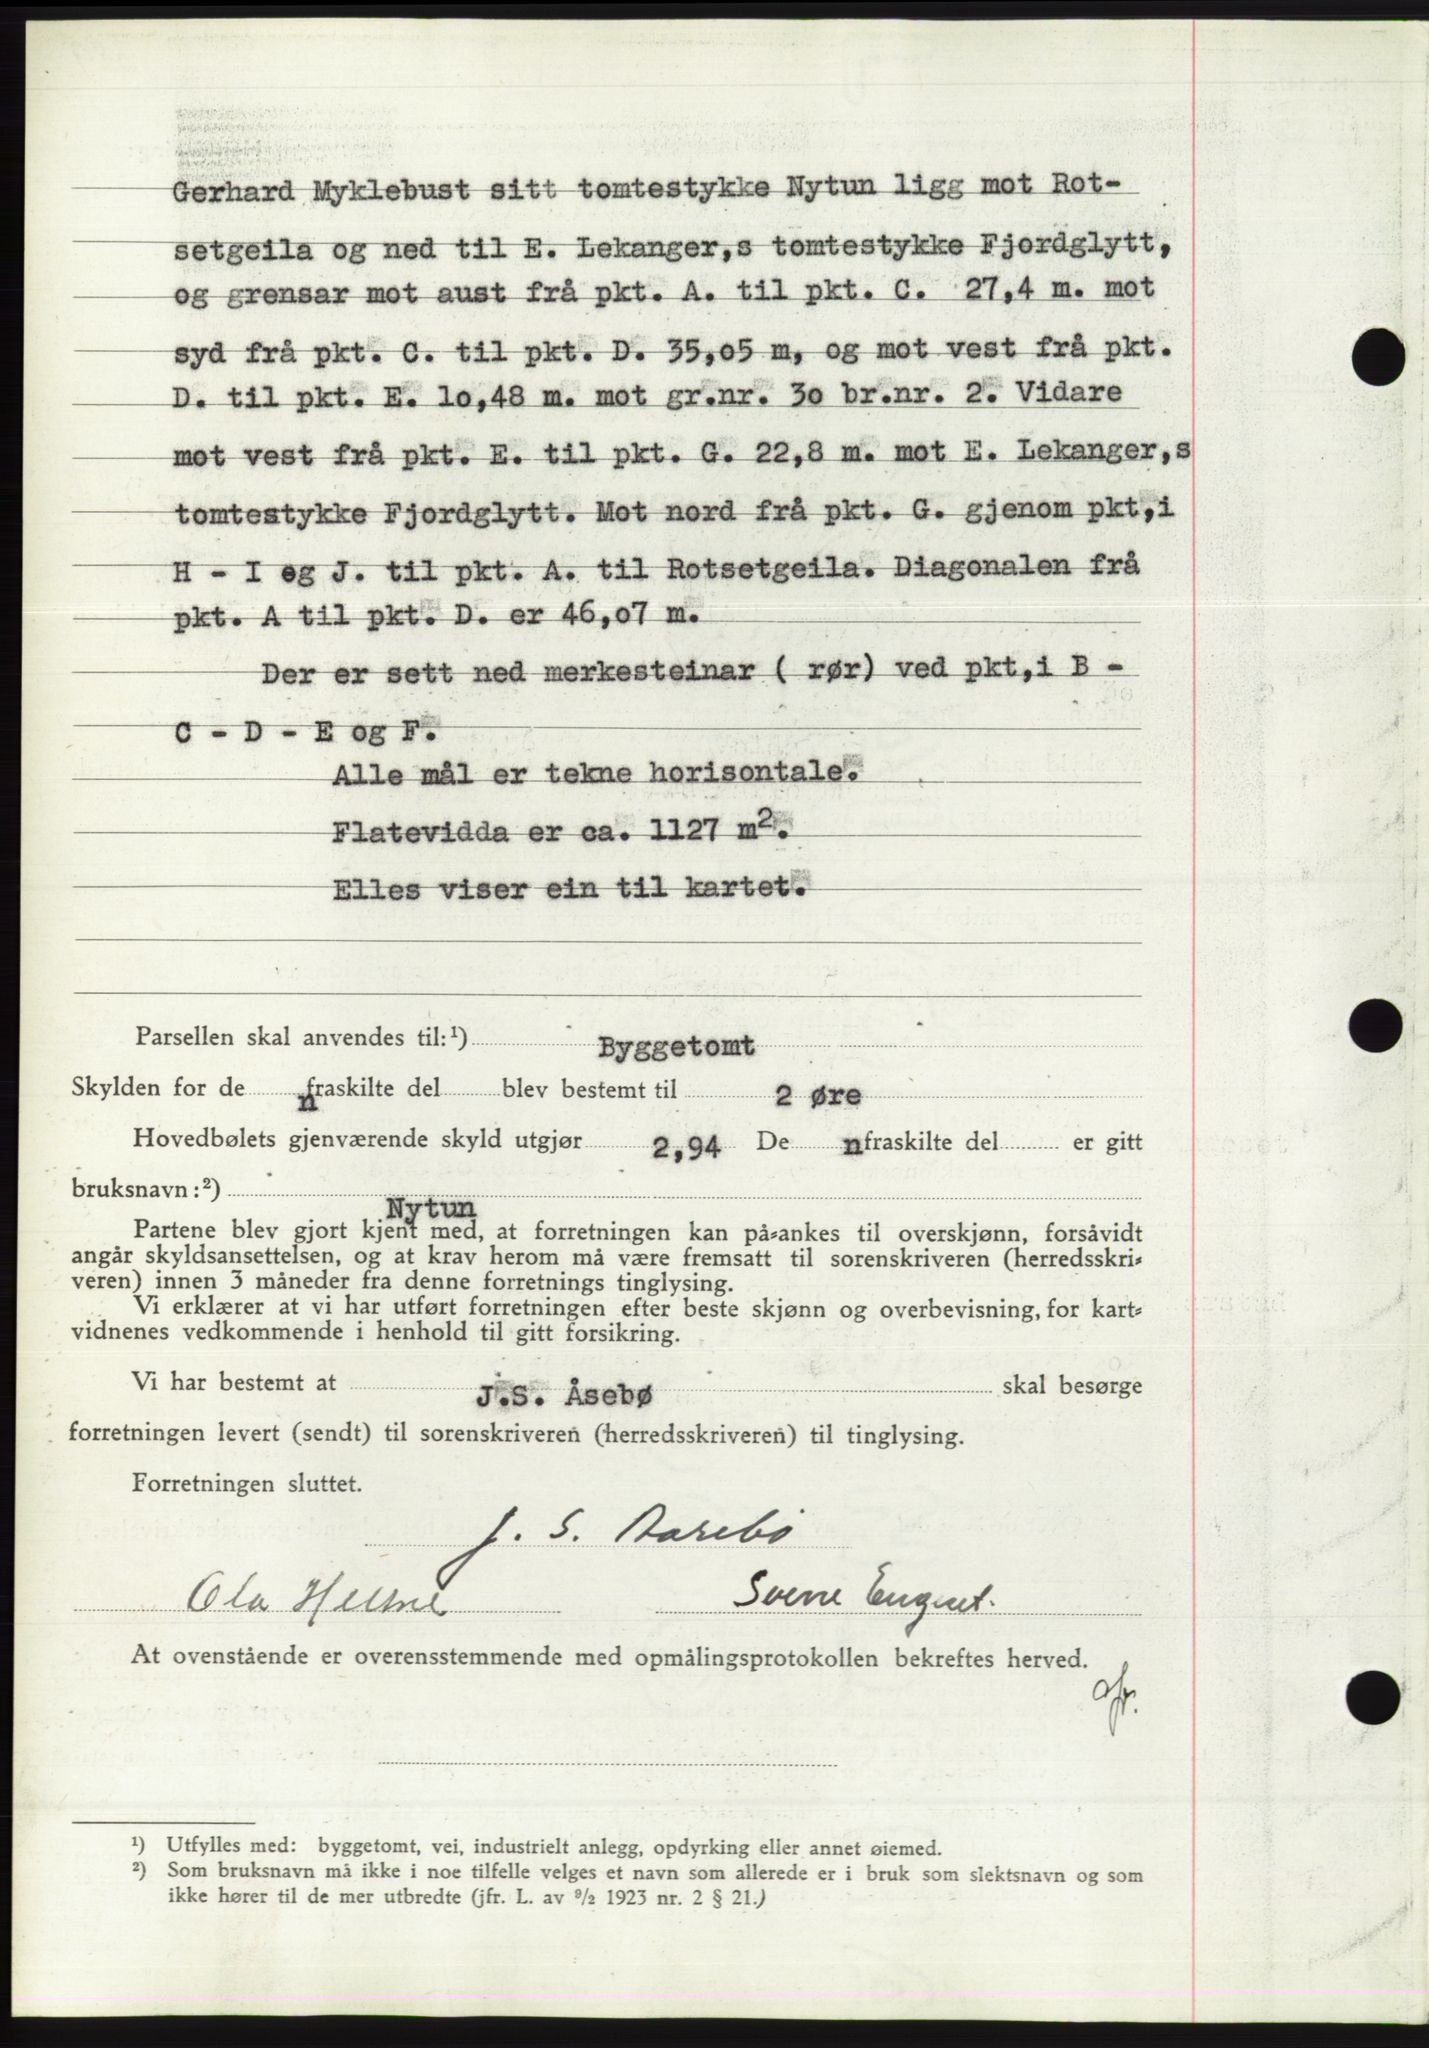 Gerhard Myklebust sitt tomtestykke Nytun ligg mot Rot-
setgeila og ned til E. Lekanger,s tomtestykke Fjordglytt,
og grensar mot aust frå pkt. A. til pkt. C. 27,4 m. mot
syd frå pkt. C. til pkt. D. 35,o5 m, og mot vest frå pkt.
D. til pkt. E. lo,48 m. mot gr.nr. 3o br.nr. 2. Vidare
mot vest frå pkt. E. til pkt. G. 22,8 m. mot E. Lekanger,s
tomtestykke Fjordglytt. Mot nord frå pkt. G. gjenom pkt,i
H - I og J. til pkt. A. til Rotsetgeila. Diagonalen frå
pkt. A til pkt. D. er 46,o7 m.
Der er sett ned merkesteinar ( rør) ved pkt,i B -
C - D - E og F.
Alle mål er tekne horisontale.
Flatevidda er ca. 1127 m².
Elles viser ein til kartet.
Parsellen skal anvendes til:¹) Byggetomt
Skylden for de n fraskilte del blev bestemt til 2 øre
Hovedbølets gjenværende skyld utgjør 2,94 De n fraskilte del er gitt
bruksnavn:²) Nytun
Partene blev gjort kjent med, at forretningen kan på-ankes til overskjønn, forsåvidt
angår skyldsansettelsen, og at krav herom må være fremsatt til sorenskriveren (herredsskri-
veren) innen 3 måneder fra denne forretnings tinglysing.
Vi erklærer at vi har utført forretningen efter beste skjønn og overbevisning, for kart-
vidnenes vedkommende i henhold til gitt forsikring.
Vi har bestemt at J.S. Åsebø skal besørge
forretningen levert (sendt) til sorenskriveren (herredsskriveren) til tinglysing.
Forretningen sluttet.
J. S. Aasebö
Ola Sverre Engeset.
At ovenstående er overensstemmende med opmålingsprotokollen bekreftes herved.
¹) Utfylles med: byggetomt, vei, industrielt anlegg, opdyrking eller annet øiemed.
²) Som bruksnavn må ikke i noe tilfelle velges et navn som allerede er i bruk som slektsnavn og som
ikke hører til de mer utbredte (jfr. L. av ⁹/₂ 1923 nr. 2 § 21.)